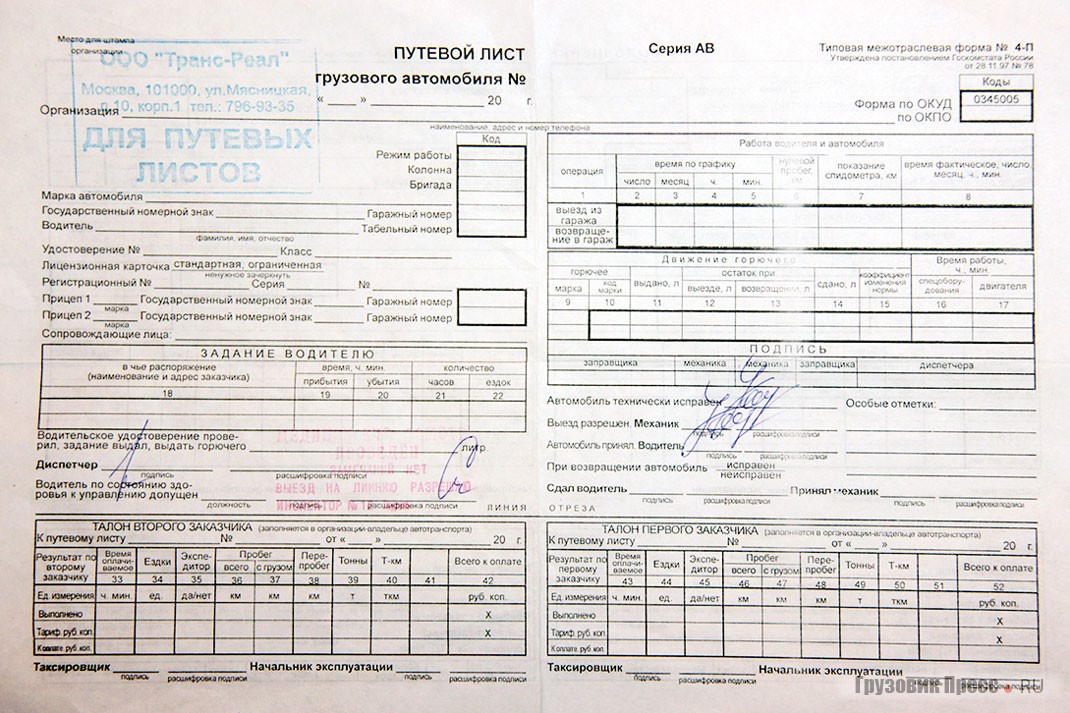 Место для штампа
организации
ООО "Транс-Реал"
Москва, 101000, ул.Мясницкая,
д.10, корп.1 тел.: 796-93-35
ДЛЯ ПУТЕВЫХ
ЛИСТОВ
ПУТЕВОЙ ЛИСТ
грузового автомобиля №
« » 20 г.
Серия АВ
Типовая межотраслевая форма № 4-П
Утверждена постановлением Госкомстата России
от 28 11 97 № 78
Коды
Форма по ОКУД 0345005
по ОКПО
Организация
наименование, адрес и номер телефона
Код
Режим работы
Колонна
Бригада
Марка автомобиля
Государственный номерной знак Гаражный номер
Водитель Табельный номер
фамилия, имя, отчество
Удостоверение № Класс
Лицензионная карточка стандартная, ограниченная
ненужное зачеркнуть
Регистрационный № Серия №
Прицеп 1 Государственный номерной знак Гаражный номер
марка
Прицеп 2 Государственный номерной знак Гаражный номер
марка
Сопровождающие лица:
Работа водителя и автомобиля
операция время по графику нулевой пробег, км показание спидометра, км время фактическое, число, месяц, ч., мин.
число месяц ч. мин.
1 2 3 4 5 6 7 8
выезд из гаража
возвраще-
ние в гараж
Движение горючего Время работы, ч., мин.
горючее остаток при
марка код марки выдано, л выезде, л возвращении, л сдано, л коэффициент изменения нормы спецобору-
дования двигателя
9 10 11 12 13 14 15 16 17
ПОДПИСЬ
заправщика механика механика заправщика диспетчера
ЗАДАНИЕ ВОДИТЕЛЮ
в чье распоряжение
(наименование и адрес заказчика)
время, ч. мин. количество
прибытия убытия часов ездок
18 19 20 21 22
Водительское удостоверение прове-
рил, задание выдал, выдать горючего литр.
Диспетчер
подпись расшифровка подписи
Водитель по состоянию здо-
ровья к управлению допущен
должность подпись расшифровка подписи
ВЫЕЗД НА ЛИНИЮ РАЗРЕШЕН
Автомобиль технически исправен Особые отметки:
Выезд разрешен. Механик
подпись расшифровка подписи
Автомобиль принял. Водитель
подпись расшифровка подписи
При возвращении автомобиль исправен
неисправен
Сдал водитель Принял механик
подпись расшифровка подписи подпись расшифровка подписи
ЛИНИЯ ОТРЕЗА
ТАЛОН ВТОРОГО ЗАКАЗЧИКА (заполняется в организации-владельце автотранспорта)
К путевому листу № от « » 20 г.
Результат по второму заказчику Время оплачи-
ваемое Ездки Экспе-
дитор Пробег Пере-
пробег Тонны Т-км Всего к оплате
всего с грузом
33 34 35 36 37 38 39 40 41 42
Ед. измерения ч. мин. ед. да/нет км км км т ткм руб. коп.
Выполнено Х
Тариф, руб. коп. Х
К оплате, руб. коп.
Таксировщик Начальник эксплуатации
подпись расшифровка подписи подпись расшифровка подписи
ТАЛОН ПЕРВОГО ЗАКАЗЧИКА (заполняется в организации-владельце автотранспорта)
К путевому листу № от « » 20 г.
Результат по первому заказчику Время оплачи-
ваемое Ездки Экспе-
дитор Пробег Пере-
пробег Тонны Т-км Всего к оплате
всего с грузом
43 44 45 46 47 48 49 50 51 52
Ед. измерения ч. мин. ед. да/нет км км км т ткм руб. коп.
Выполнено Х
Тариф, руб. коп. Х
К оплате, руб. коп.
Таксировщик Начальник эксплуатации
подпись расшифровка подписи подпись расшифровка подписи
Грузовик Пресс.RU